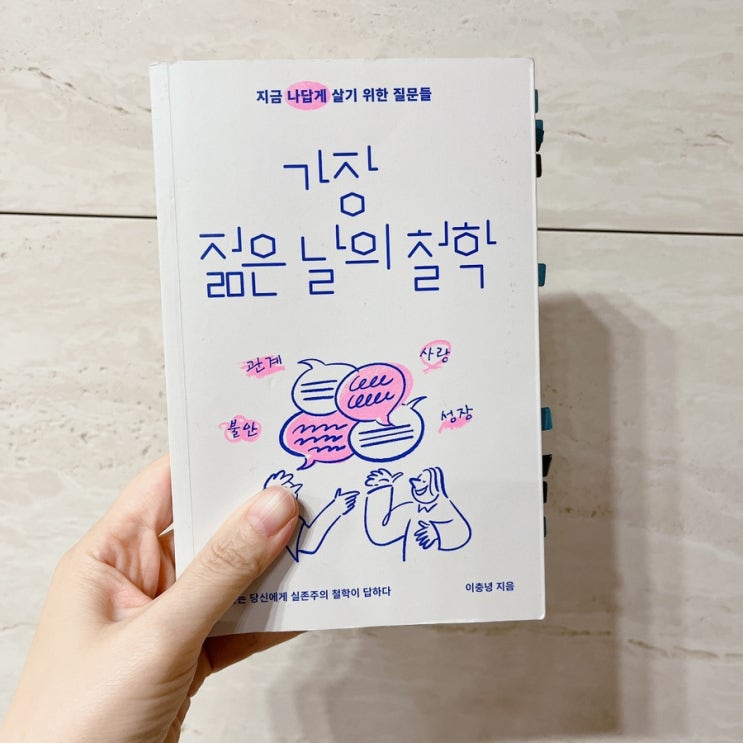 지금 나답게 살기 위한 질문들
가장
젊은 날의 철학
관계
사랑
불안
성장
당신에게 실존주의 철학이 답하다
이충녕 지음